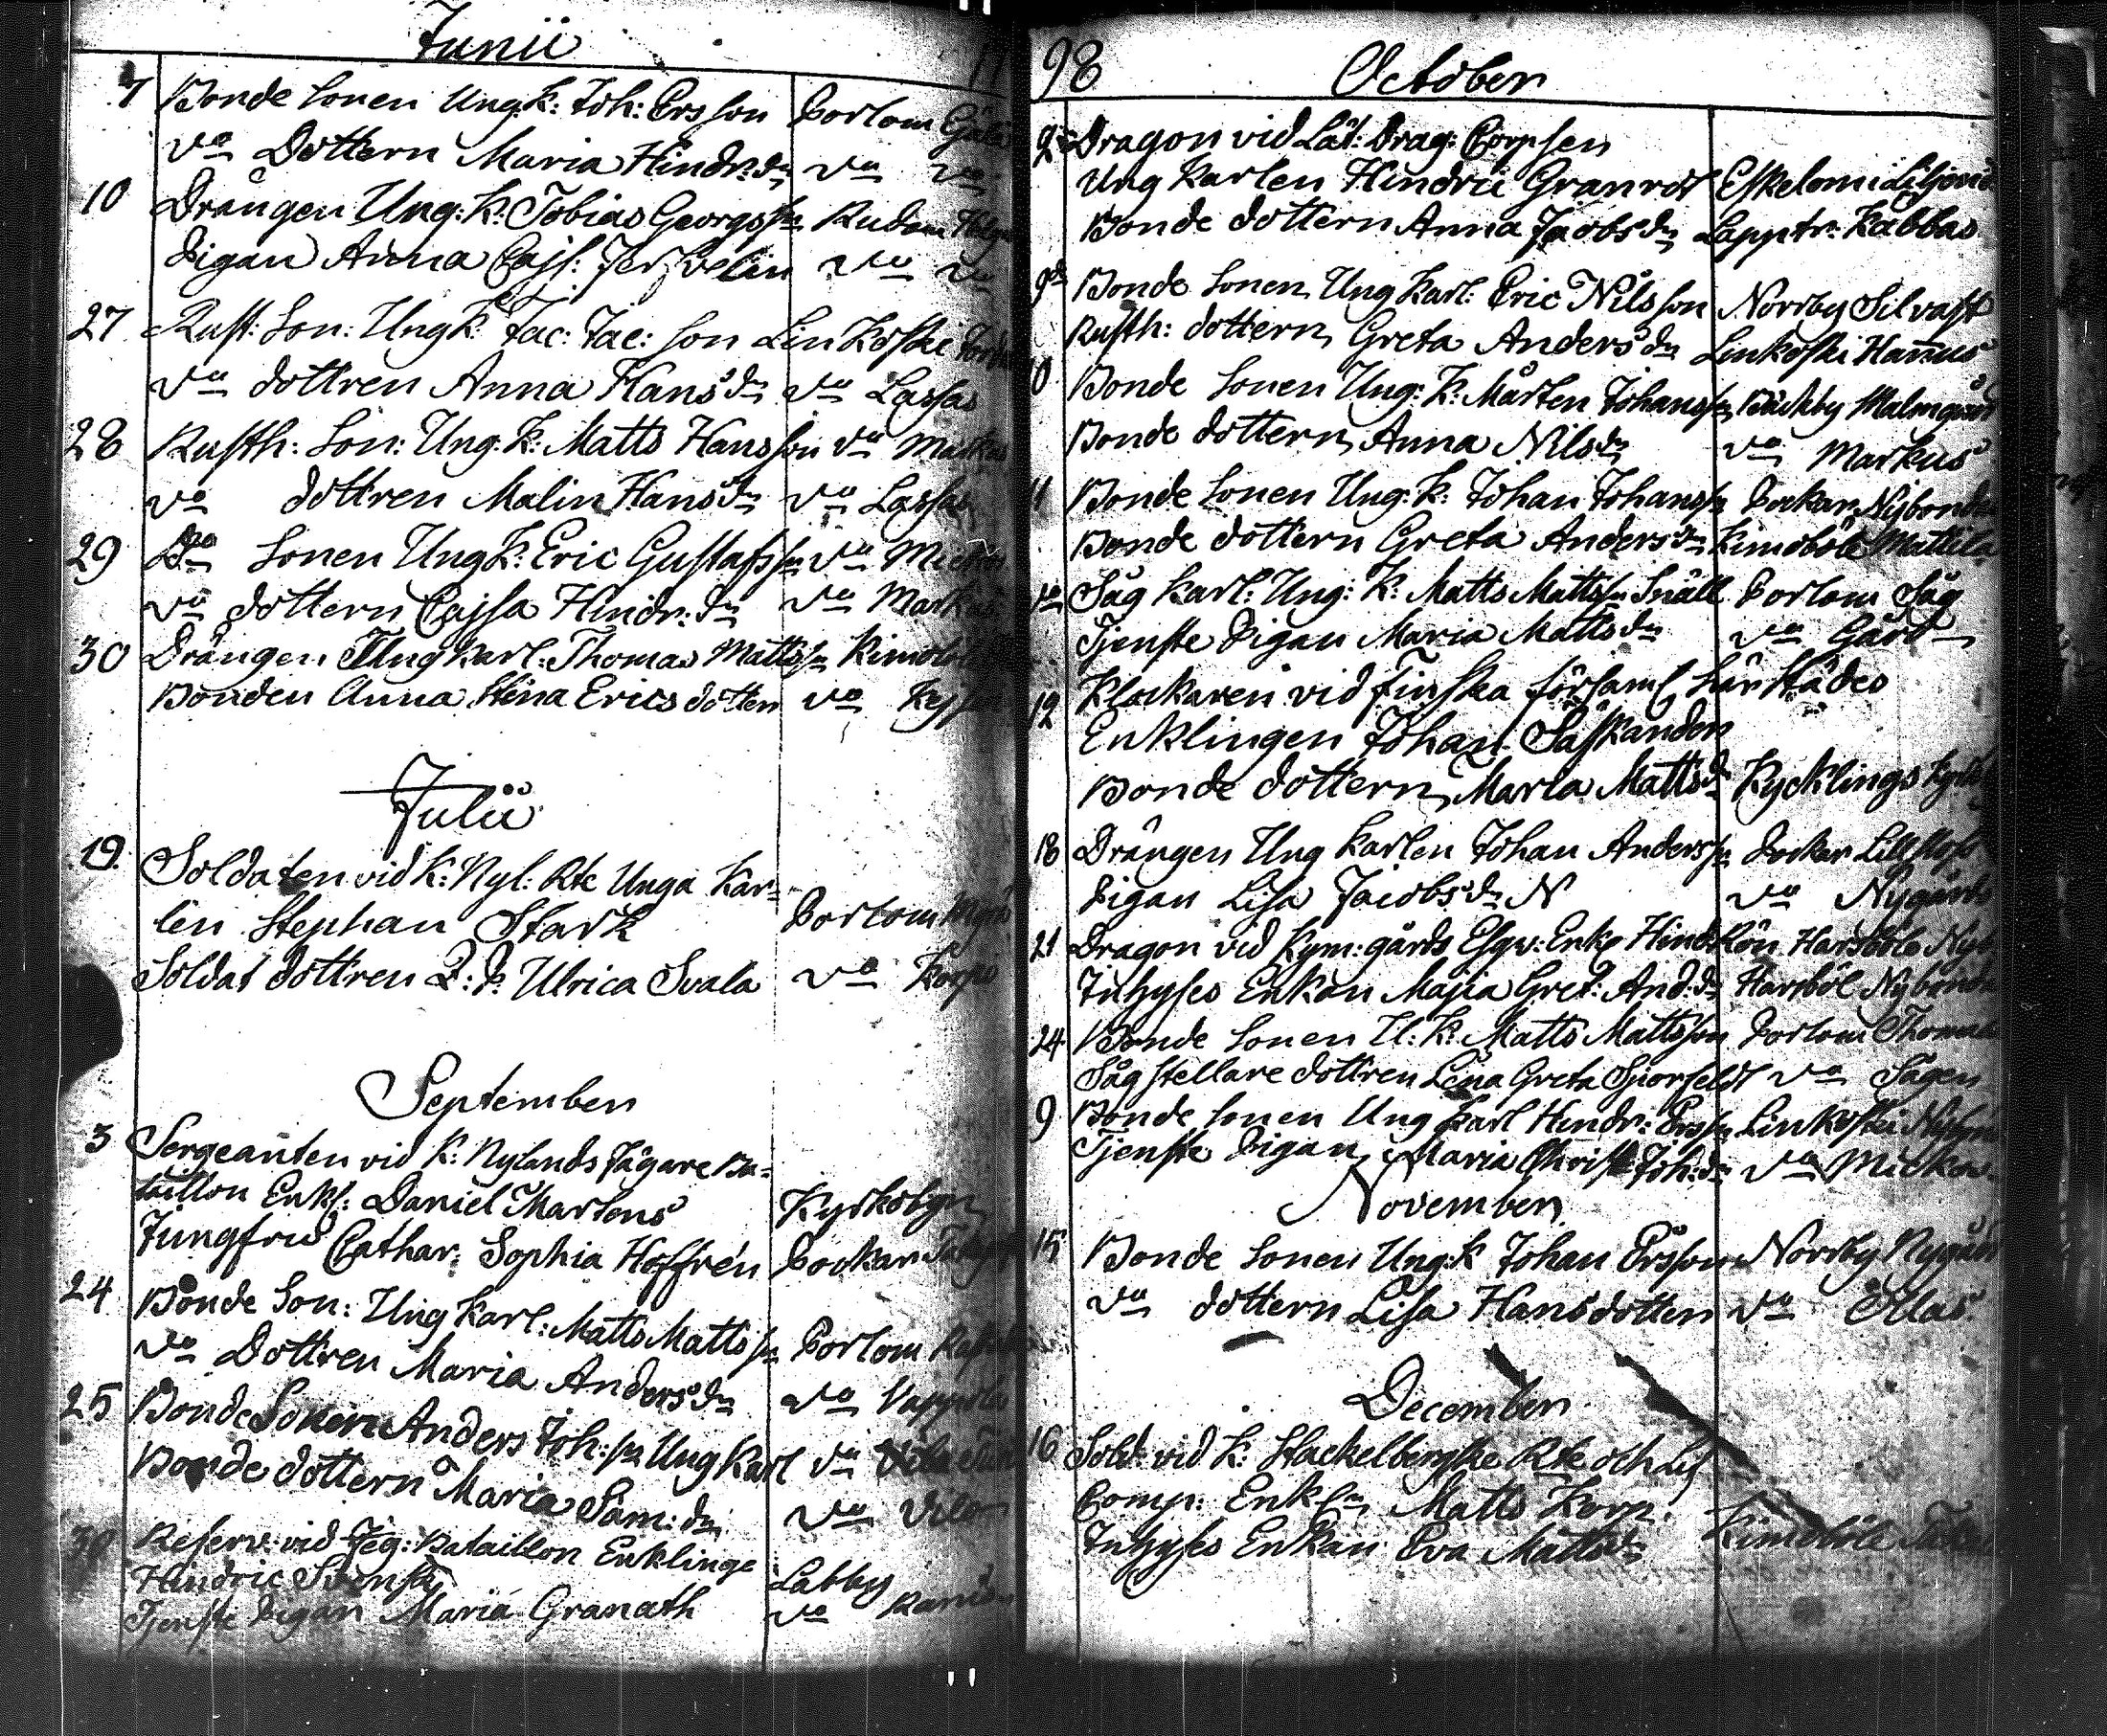 Junii
7 Bonde sonen Ung.k: Joh: Ersson Porlom
Do Dottern Maria Hindr:dr Do Do
10 Drängen Ung:k: Tobias Georgss:n Rudom
Pigan Anna Cajs: Do Do
27 Rust: Son: Ungk: Jac: Jac: son Linkoski
Do dottren Anna Hansdr Do Lassas
28 Rusth: Son: Ung:k: Matts Hansson Do Markus
Do dottren Malin Hansdr Do Lassas
29 Do Sonen Ungk: Eric Gustafsson Do
Do dottern Cajsa Hindr:dr Do Markus
30 Drängen Ungkarl: Thomas Mattss:n Kimoböle
Bonden Anna Stina Ericsdotter Do
Julii
19. Soldaten vid K: Nyl: Rte Unga Kar=
len Stephan Stark Porlom
Soldat dottren Q: P: Ulrica Svala Do Korpi
September
3 Sergeanten vid K: Nylands Jägare Ba=
taillon Enkl: Daniel Martens Kyrkobyn
Jungfru Cathar: Sophia Hoffrén Pockar
24 Bonde Son: Ung karl: Matts Mattss:n Porlom
Do Dottren Maria Andersdr Do
25 Bonde Sonen Anders Joh:sn Ung Karl Do
Bonde dottern Maria Sam:dr Do
30 Reserv: vid Jeg: Bataillon Enklinge
Hindric Labby
Tjenste Pigan Maria Granath Do
98 October
2 Dragon vid Lät: Drag: Corpsen
Ung Karlen Hindric Granrot Eskelomi
Bonde dottern Anna Jacobsdr Lapptr: Kabbas
9 Bonde Sonen Ung Karl: Eric Nilsson Norrby Silvast
Rusth: dottern Greta Andersdr Linkoski Hannus
10 Bonde Sonen Ung: K: Mårten Johanss:n Bäckby Malmgård
Bonde dottern Anna Nilsdr Do Markus
11 Bonde Sonen Ung: K: Johan Johanss:n Pockar Nybonde
Bonde dottern Greta Andersdr Kimoböle Mattila
Do Såg karl: Ung: K: Matts Mattss:n Snäll Porlom Såg
Tjenste Pigan Maria Mattsdr Do Gård
12 Klockaren vid Finska församl härstädes
Enklingen Johan
Bonde dottern Maria Mattsdr Kycklings
18 Drängen Ung Karlen Johan Anderss:n Pockar
Pigan Lisa Jacobsdr N Do Nygård
21 Dragon vid Kym:gårds Esqv: Enke Hind: Rön Harsböle
Inhyses Enkan Maja Gret: And:dr Harsböl Nybonde
24 Bonde Sonen U: K: Matts Mattsson Porlom Thomas
Såg stellare dottren Lena Greta Do Sågen
9 Bonde Sonen Ung Karl Hindr: Erss:n Linkoski
Tjenste Pigan Maria Christ: Joh:dr Do Micka
November
15 Bonde Sonen Ung:k Johan Ersson Norrby Nygård
Do dottern Lisa Hansdotter Do Ollas
December
16 Sold: vid K: Stackelbergske Rte och Lif
Comp: Enkl:n Matts Korp.
Inhyses Enkan Eva Mattsdr Kimoböle